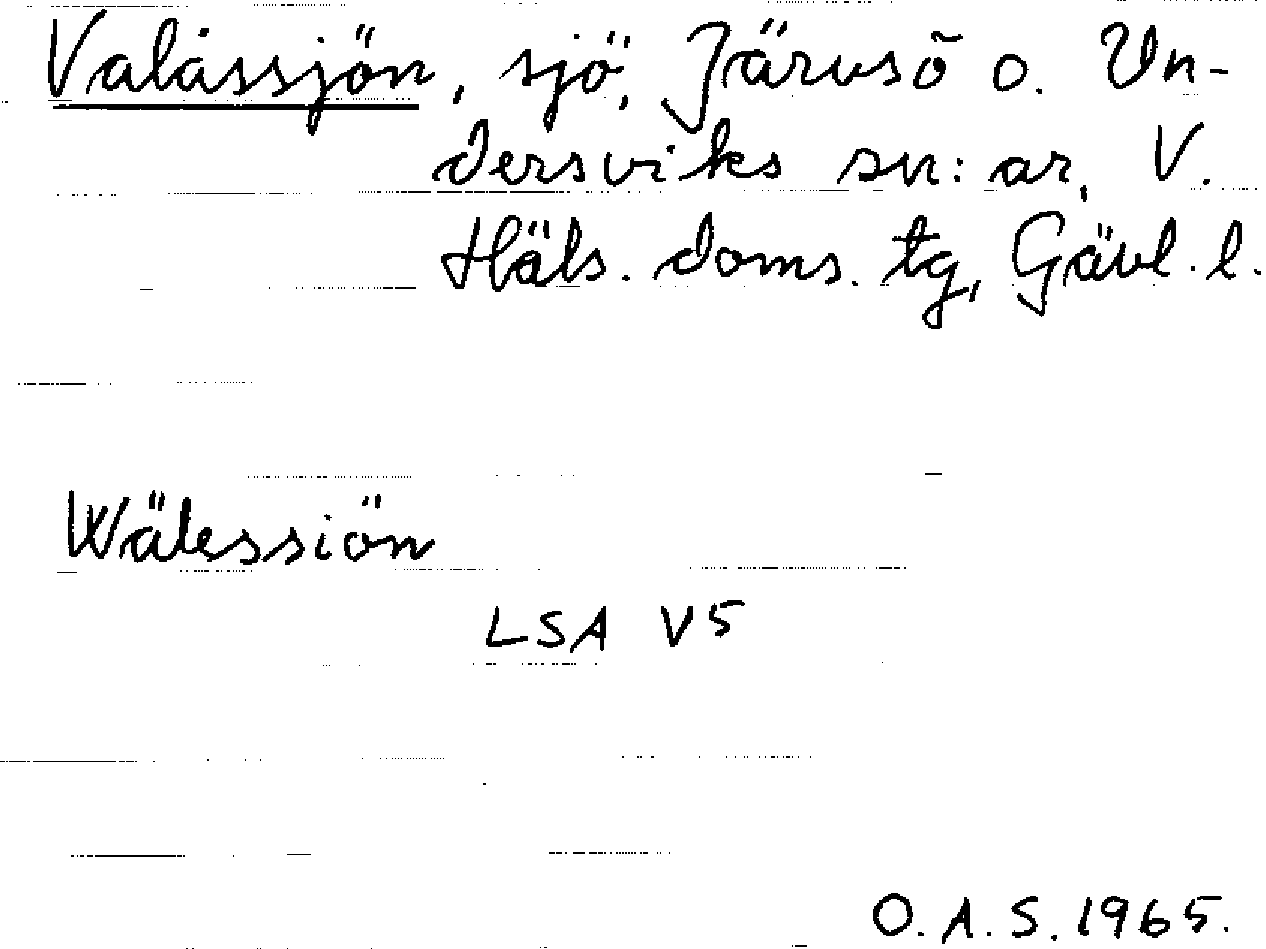 Valåssjön, sjö, Järvsö o. Un-
dersviks sn:ar, V.
Häls. doms. tg, Gävl. l.
Wälessiön
LSA V5
O. A. S. 1965.